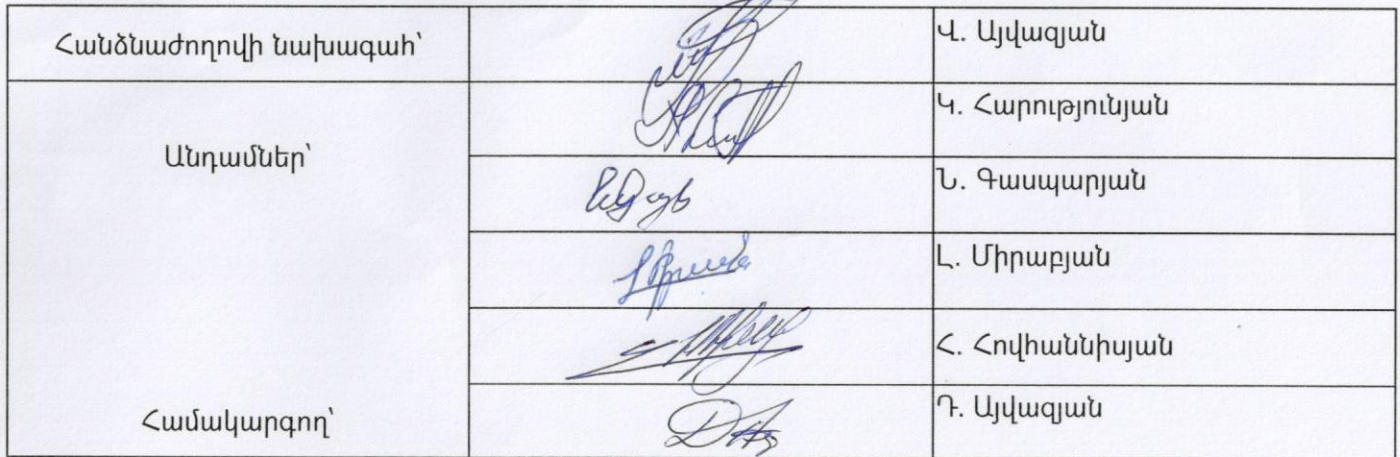 Հանձնաժողովի նախագահ՝
Վ. Այվազյան
Անդամներ՝
Կ. Հարությունյան
Ն. Գասպարյան
Լ. Միրաբյան
Հ. Հովհաննիսյան
Համակարգող՝
Դ. Այվազյան